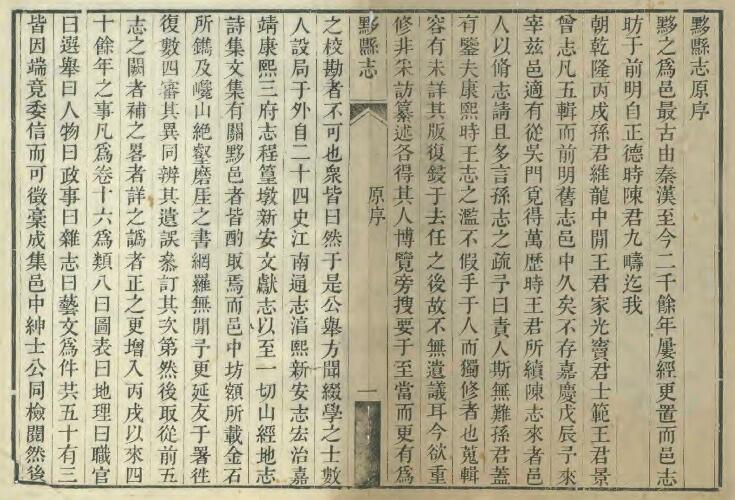 黟縣志原序
黟之爲邑最古由秦漢至今二千餘年屢經更置而邑志
昉于前明自正德時陳君九疇迄我
朝乾隆丙戌孫君維龍中閒王君家光竇君士範王君景
曾志凡五輯而前明舊志邑中久矣不存嘉慶戊辰予來
宰兹邑適有從吳門覓得萬歴時王君所續陳志來者邑
人以脩志請且多言孫志之疏予曰責人斯無難孫君蓋
有鑒夫康熙時王志之濫不假手于人而獨修者也蒐輯
容有未詳其版復鋟于去任之後故不無遺議耳今欲重
修非采訪纂述各得其人博覽旁搜要于至當而更有爲
黟縣志
原序
一
之校勘者不可也衆皆曰然于是公舉方聞綴學之士數
人設局于外自二十四史江南通志淳熙新安志宏治嘉
靖康熙三府志程篁墩新安文獻志以至一切山經地志
詩集文集有關黟邑者皆酌取焉而邑中坊額所載金石
所鐫及巉山絶壑磨厓之書網羅無閒予更延友于署徃
復數四審其異同辨其遺誤叅訂其次第然後取從前五
志之闕者補之畧者詳之譌者正之更增入丙戌以來四
十餘年之事凡爲卷十六爲類八曰圖表曰地理曰職官
曰選舉曰人物曰政事曰雜志曰藝文爲件共五十有三
皆因端竟委信而可徵稾成集邑中紳士公同檢閱然後